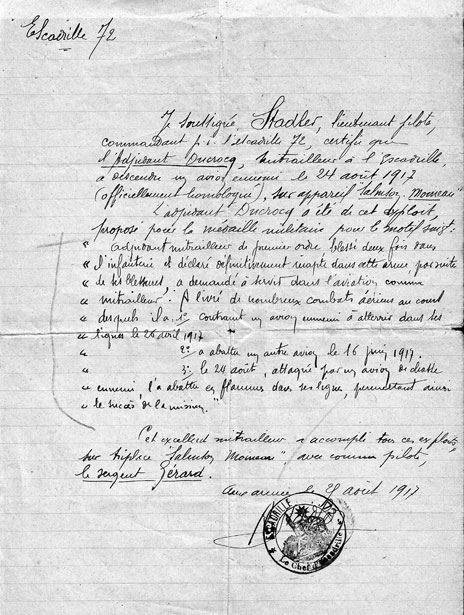 Escadrille 72
Je soussigné Stadler, lieutenant pilote,
commandant p.i. l'escadrille 72, certifie que
l'Adjudant Ducrocq, mitrailleur à l'Escadrille
a descendu un avion ennemi le 24 août 1917
(officiellement homologué), sur appareil "Salmson Moineau"
L'adjudant Ducrocq a été de cet exploit,
proposé pour la médaille militaire pour le motif suivt:
" Adjudant mitrailleur de premier ordre blessé deux fois dans
" l'infanterie et déclaré définitivement inapte dans cette arme, par suite
" de ses blessures, a demandé à servir dans l'aviation comme
" mitrailleur. A livré de nombreux combats aériens au cours
" desquels il a, 1º contraint un avion ennemi à atterrir dans ses
" lignes le 26 avril 1917
" 2º a abattu un autre avion le 16 juin 1917.
" 3º le 24 août, attaqué par un avion de chasse
" ennemi l'a abattu en flammes dans ses lignes, permettant ainsi
" le succès de la mission."
Cet excellent mitrailleur a accompli tous ces exploits,
sur triplace "Salmson Moineau", avec comme pilote,
le sergent Gérard.
Aux armées le 29 août 1917
ESCADRILLE
Le Chef d'Escadrille